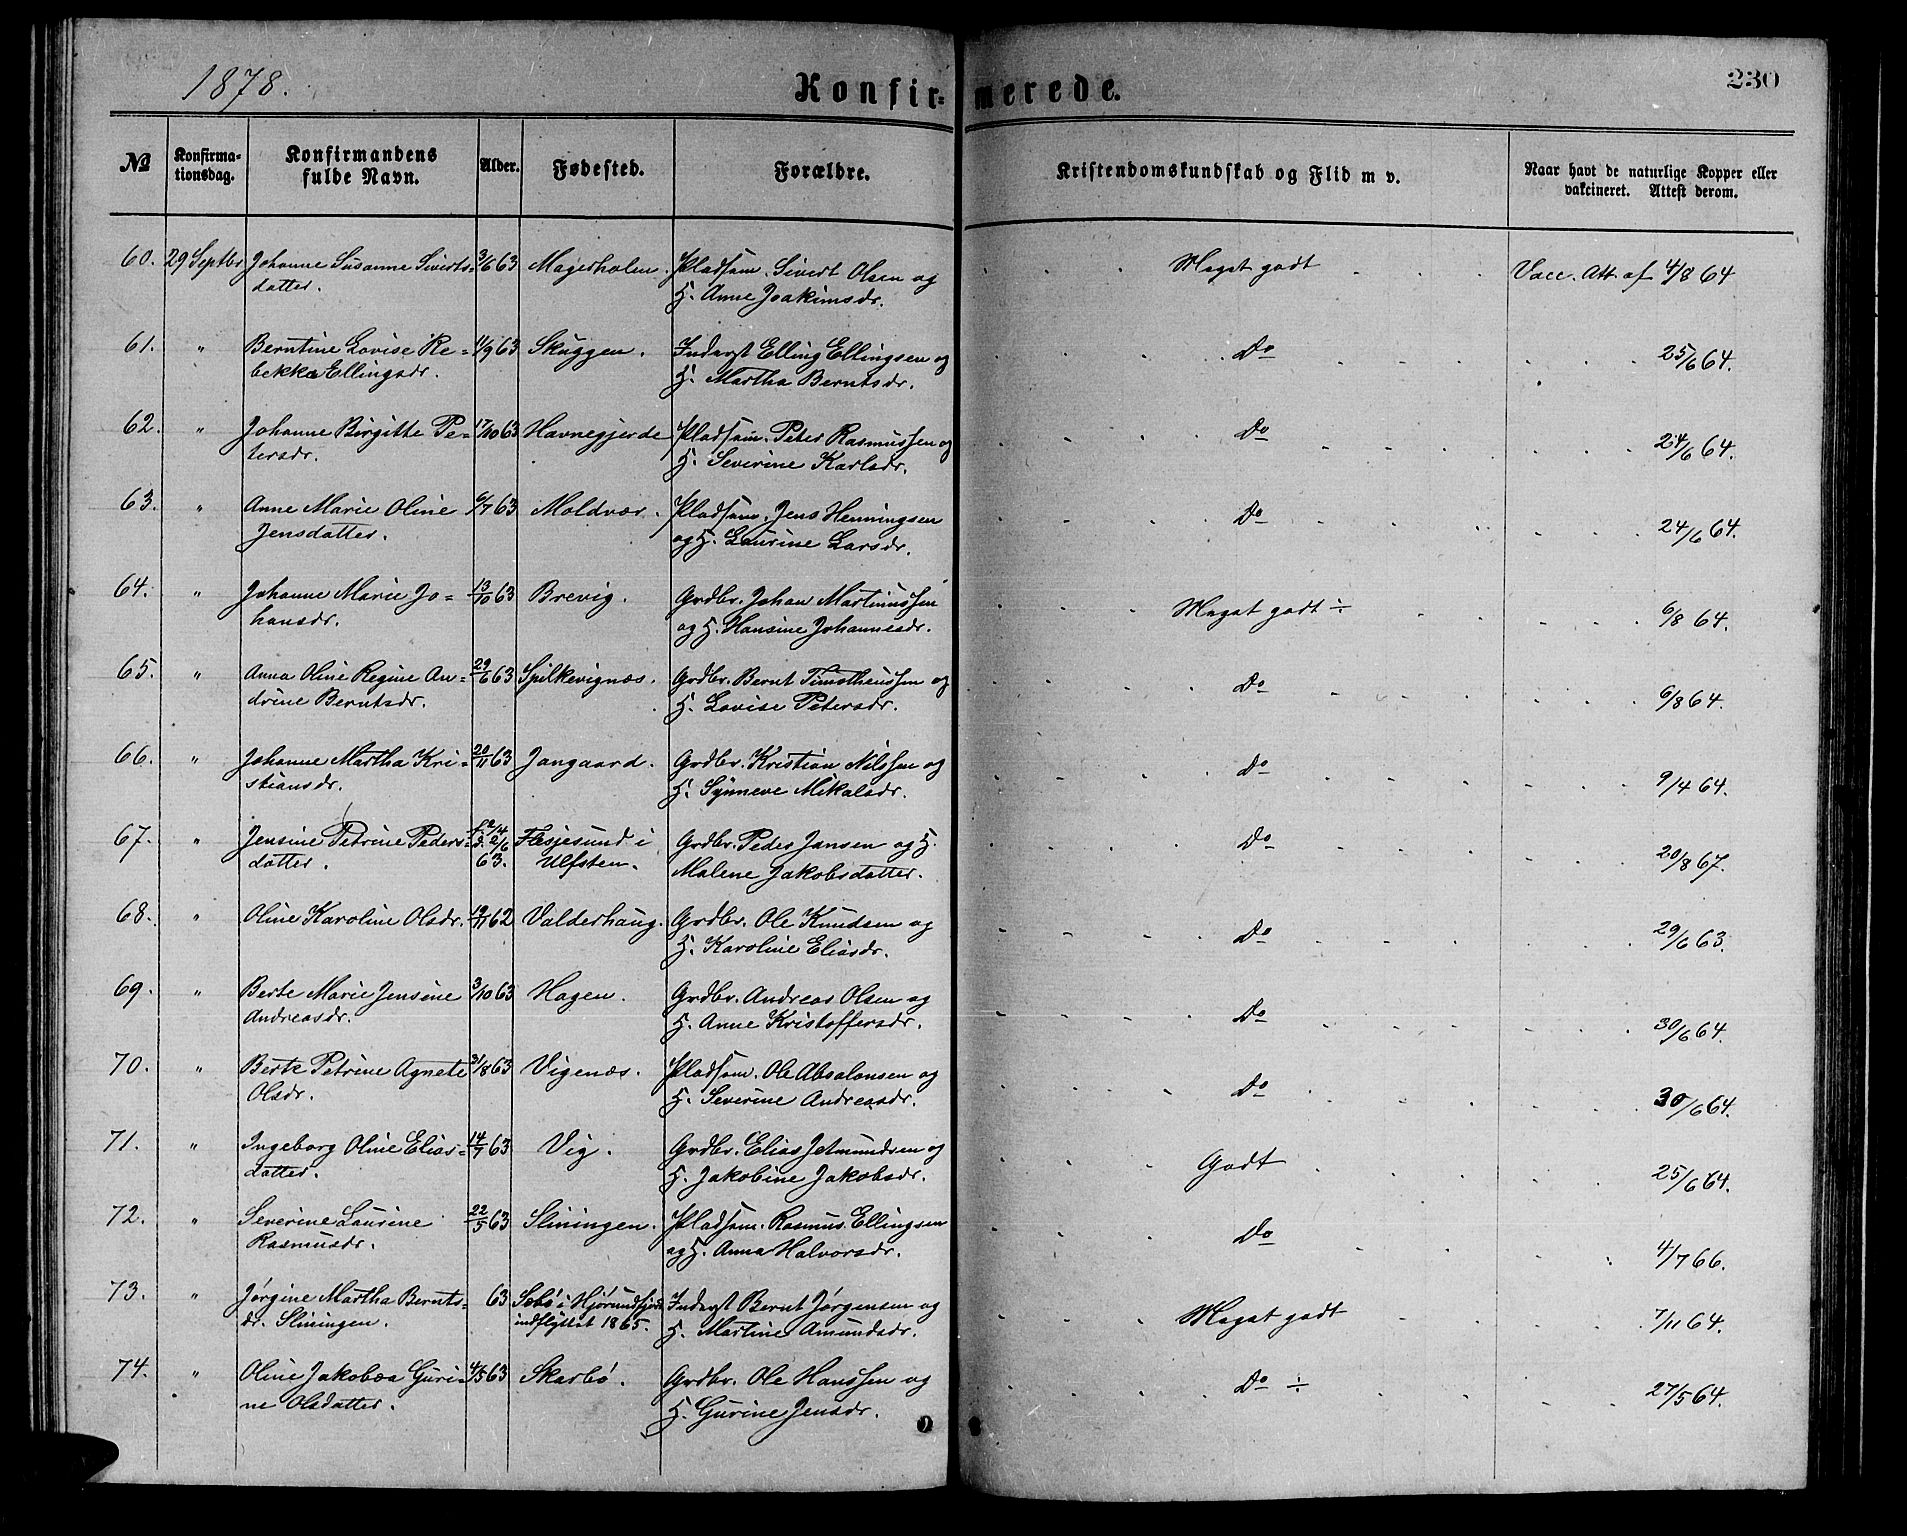 1878.
Konfirmerede.
230
No
Konfirma-
tionsdag.
Konfirmandens
fulde Navn.
Alder.
Fødested.
Forældre.
Kristendomskundskab og Flid m v.
Naar havt de naturlige Kopper eller
vakcineret. Attest derom.
60. 29 Septbr Johanne Susanne Siverts= 3/6 63 Magerholm. Pladsm. Sivert Olsen og Meget godt Vacc. Att. af 4/8 64
datter. H. Anne Joakimsdr.
61. " Berntine Lovise Re= 11/9 63 Skuggen. Inderst Elling Ellingsen og Do 25/6 64.
bekka Ellingsdr. H. Martha Berntsdr.
62. " Johanne Birgitte Pe= 17/10 63 Havnegjerde Pladsm. Peter Rasmussen og Do 24/6 64.
tersdr. H. Severine Karlsdr.
63. " Anne Marie Oline 6/7 63 Moldvær. Pladsm. Jens Henningsen Do 24/6 64.
Jensdatter. og H. Laurine Larsdr.
64. " Johanne Marie Jo= 13/10 63 Brevig. Grdbr. Johan Martinussen Meget godt ÷ 6/8 64.
hansdr. og H. Hansine Johannesdr.
65. " Anna Oline Regine An= 29/6 63 Spilkevignæs. Grdbr. Bernt Timotheussen og Do 6/8 64.
drine Berntsdr. H. Lovise Petersdr.
66. " Johanne Martha Kri= 20/11 63 Jangaard. Grdbr. Kristian Nilssen og Do 9/4 64.
stiansdr. H. Synneve Mikalsdr.
67. " Jensine Petrine Peders= f. 2/4 Flesjesund i Grdbr. Peder Jansen og H. Do 20/8 67.
datter. 2/6 63. Ulfsten. Malene Jakobsdatter.
68. " Oline Karoline Olsdr. 19/11 62 Valderhaug. Grdbr. Ole Knudsen og Do 29/6 63.
H. Karoline Eliasdr.
69. " Berte Marie Jensine 3/10 63 Hagen. Grdbr. Andreas Olsen og Do 30/6 64.
Andreasdr. H. Anne Kristoffersdr.
70. " Berte Petrine Agnete 31/8 63 Vigenæs. Pladsm. Ole Absalonsen og Do 30/6 64.
Olsdr. H. Severine Andreasdr.
71. " Ingeborg Oline Elias= 14/7 63 Vig. Grdbr. Elias Jetmundsen og Godt 25/6 64.
datter. H. Jakobine Jakobsdr.
72. " Severine Laurine 22/5 63 Slinningen. Pladsm. Rasmus Ellingsen Do 4/7 66.
Rasmusdr. og H. Anna Halvorsdr.
73. " Jørgine Martha Bernts= 63 Sæbö i Hjörundfjord Inderst Bernt Jørgensen og Meget godt 7/11 64.
dr. Slinningen. indflyttet 1865. H. Martine Amundsdr.
74. " Oline Jakobæa Guri= 4/5 63 Skarbö. Grdbr. Ole Hanssen og Do ÷ 27/5 64.
ne Olsdatter. H. Gurine Jensdr.